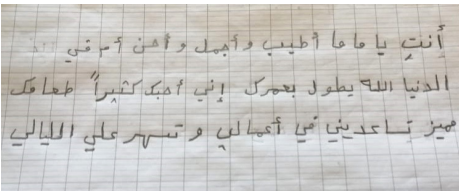 أنتِ يا ماما أطيب وأجمل وأحن أم في
الدنيا الله يطول بعمرك إني أحبك كثيراً طعامك
مميز تساعديني في أعمالي و تسهر علي الليالي